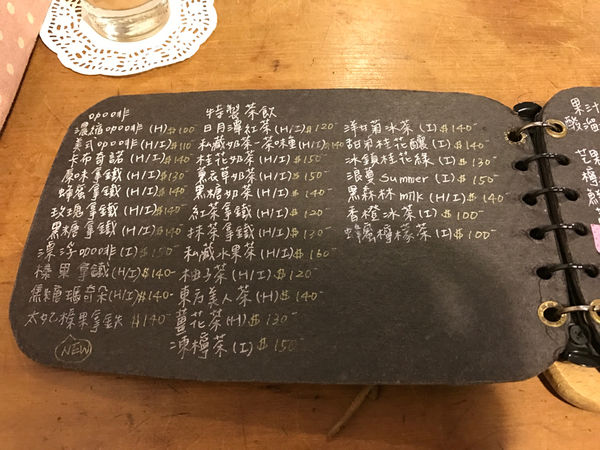 咖啡
濃縮咖啡(H)$100
美式咖啡(H/I)$110
卡布奇諾(H/I)$140-
原味拿鐵(H/I)$130-
蜂蜜拿鐵(H/I)$140-
玫瑰拿鐵(H/I)$140-
黑糖拿鐵(H/I)$140-
漂浮咖啡(I)$150-
榛果拿鐵(H/I)$140-
焦糖瑪奇朵(H/I)$140-
太妃榛果拿鐵 $140-
NEW
特製茶飲
日月潭紅茶(H/I)$120-
私藏奶茶-茶味種(H/I)$140
桂花奶茶(H/I)$150-
薰衣草奶茶(H/I)$150-
黑糖奶茶(H/I)$140-
紅茶拿鐵(H/I)$120-
抹茶拿鐵(H/I)$130-
私藏水果茶(H/I)$160-
柚子茶(H/I)$120
東方美人茶(H)$140-
薑花茶(H)$130-
凍檸茶(I)$150-
洋甘菊冰茶(I)$140-
甜甜桂花釀(I)$140-
冰鎮桂花綠(I)$130-
浪漫Summer(I)$150-
黑森林milk(H/I)$140-
香橙冰茶(I)$100-
蜂蜜檸檬茶(I)$100-
果汁